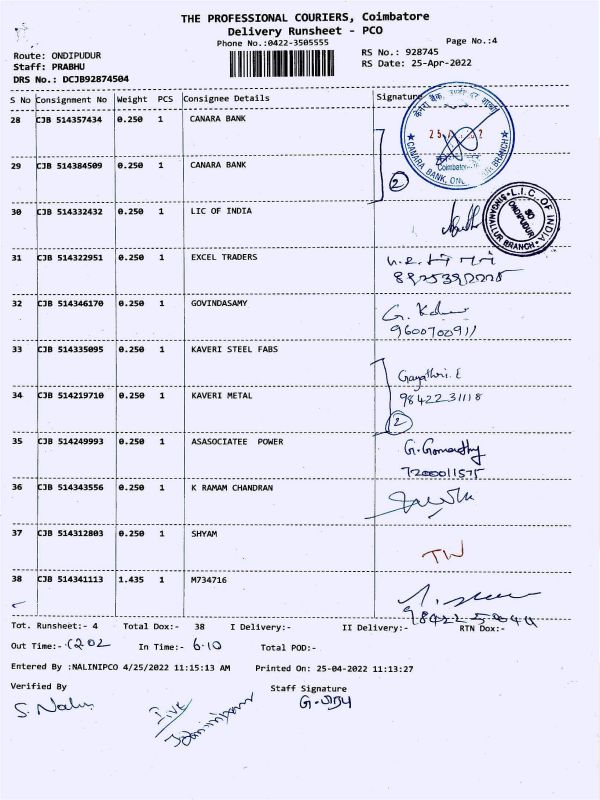 THE PROFESSIONAL COURIERS, Coimbatore
Delivery Runsheet - PCO
Phone No.:0422-3505555
Page No.:4
Route: ONDIPUDUR
RS No.: 928745
Staff: PRABHU
RS Date: 25-Apr-2022
DRS No.: DCJB92874504
S No Consignment No Weight PCS Consignee Details Signature
28 CJB 514357434 0.250 1 CANARA BANK
CANARA BANK
BRANCH
Coimbatore
29 CJB 514384509 0.250 1 CANARA BANK
2
30 CJB 514332432 0.250 1 LIC OF INDIA
L.I.C. OF INDIA
SO
ONDIPUDUR
SINGANALLUR BRANCH
31 CJB 514322951 0.250 1 EXCEL TRADERS
32 CJB 514346170 0.250 1 GOVINDASAMY
9600700911
33 CJB 514335095 0.250 1 KAVERI STEEL FABS
Gayathri. E
34 CJB 514219710 0.250 1 KAVERI METAL
9842231118
2
35 CJB 514249993 0.250 1 ASASOCIATEE POWER
G. Gomathy
7200011575
36 CJB 514343556 0.250 1 K RAMAM CHANDRAN
37 CJB 514312803 0.250 1 SHYAM
TW
38 CJB 514341113 1.435 1 M734716
Tot. Runsheet:- 4 Total Dox:- 38 I Delivery:- II Delivery:- RTN Dox:-
Out Time:- 1202 In Time:- 6.10 Total POD:-
Entered By :NALINIPCO 4/25/2022 11:15:13 AM Printed On: 25-04-2022 11:13:27
Verified By Staff Signature